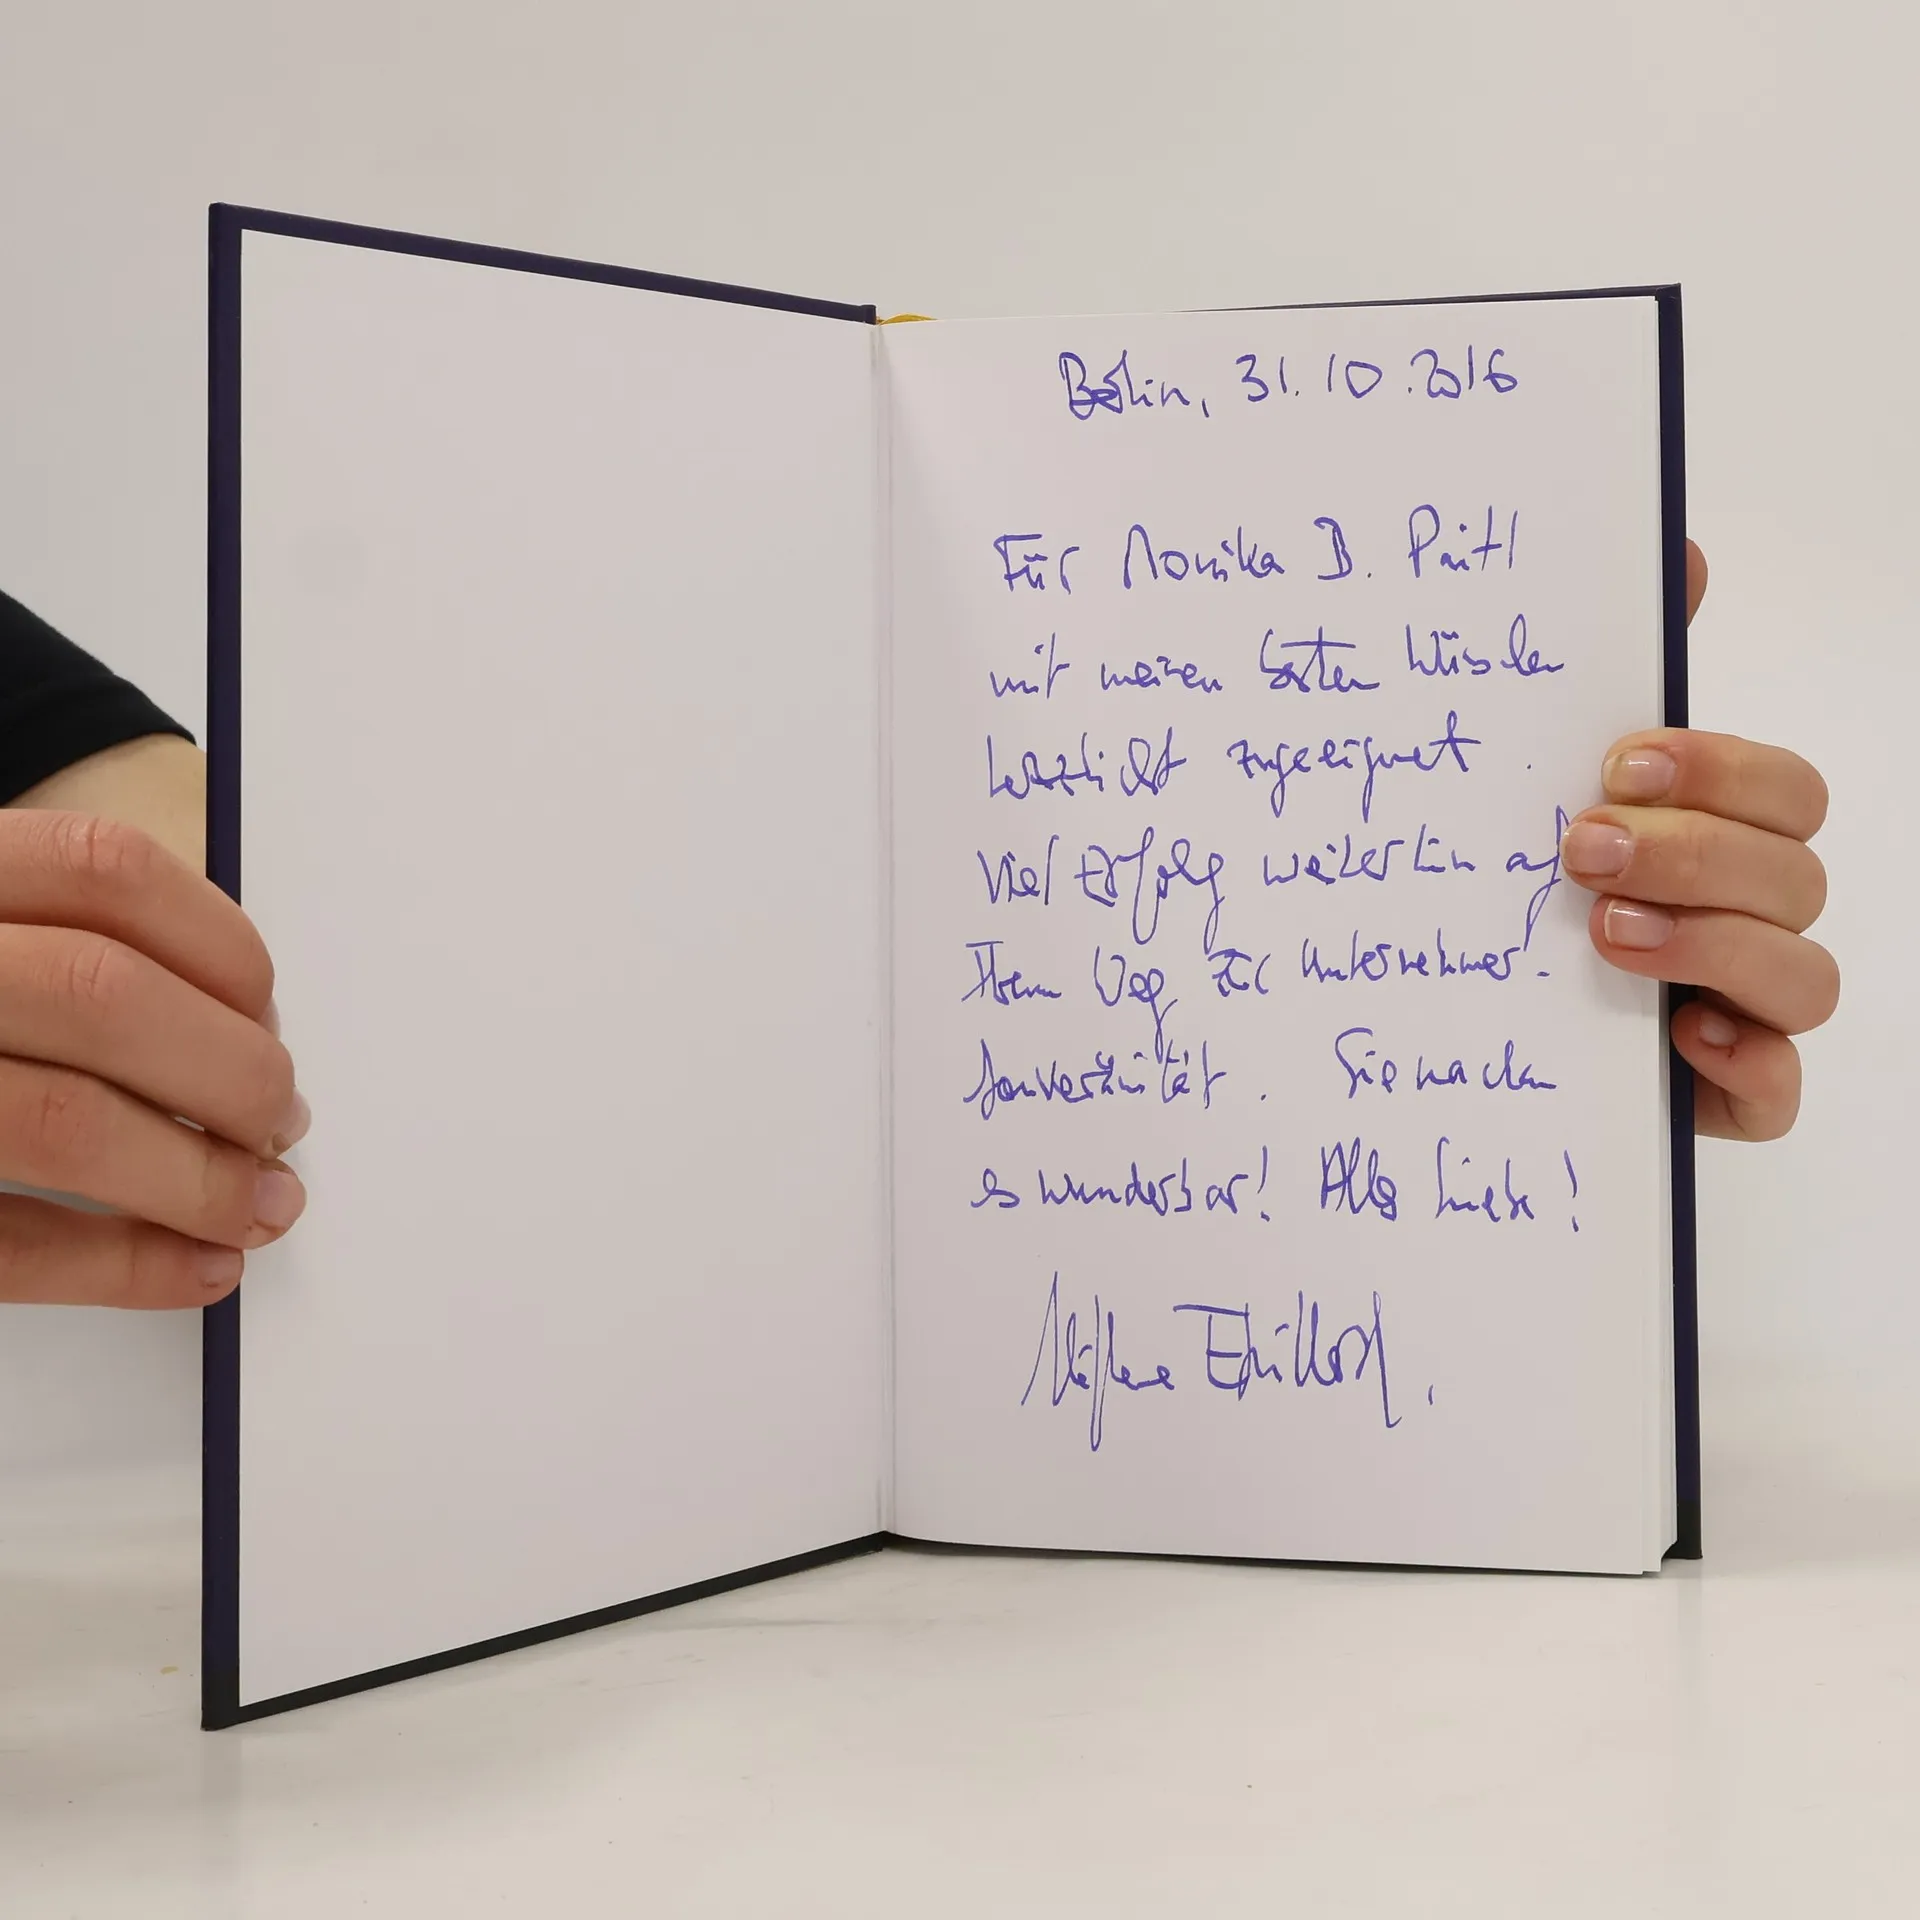 Berlin, 31.10.2016
Für Monika B. Paitl
mit meinen besten Wünschen
herzlichst zugeeignet.
Viel Erfolg weiterhin auf
Ihrem Weg zur Unternehmer-
souveränität. Sie machen
es wunderbar! Alles Liebe!